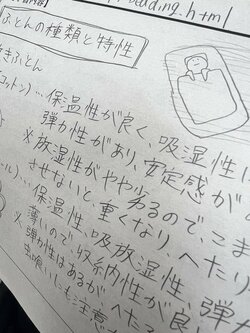 bedding.html
ふとんの種類と特性
きふとん
コットン)…保温性が良く、吸湿性は
弾力性があり、安定感が
※放湿性がやや劣るので、こま
させないと、重くなり、へたり
ール)…保温性、吸放湿性、弾
薄いので収納性が良
※弾力性はあるが、へたっ
虫喰いにも注意